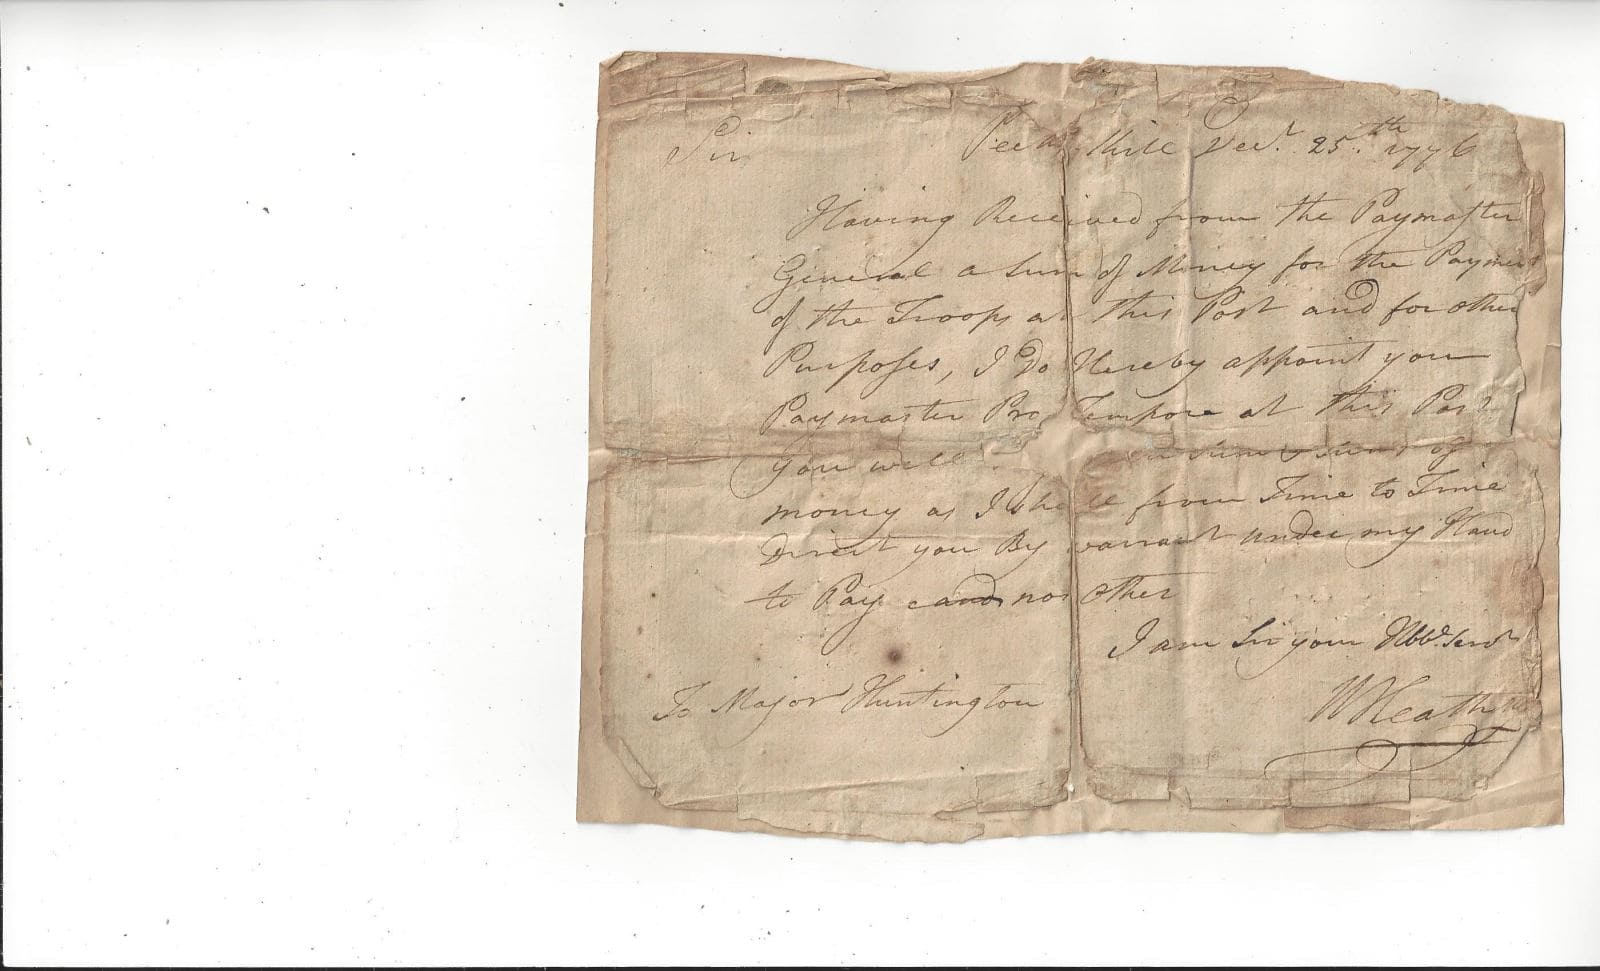 Sir Peeks Kill Decr. 25th. 1776
Having Received from the Paymaster
General a Sum of Money for the Payment
of the Troops at this Post and for other
Purposes, I Do Hereby appoint you
Paymaster Pro Tempore at this Post
you will of
money as I shall from Time to Time
Direct you By warrant under my Hand
to Pay and no other
I am Sir your Obbt. Servt
To Major Huntington W Heath